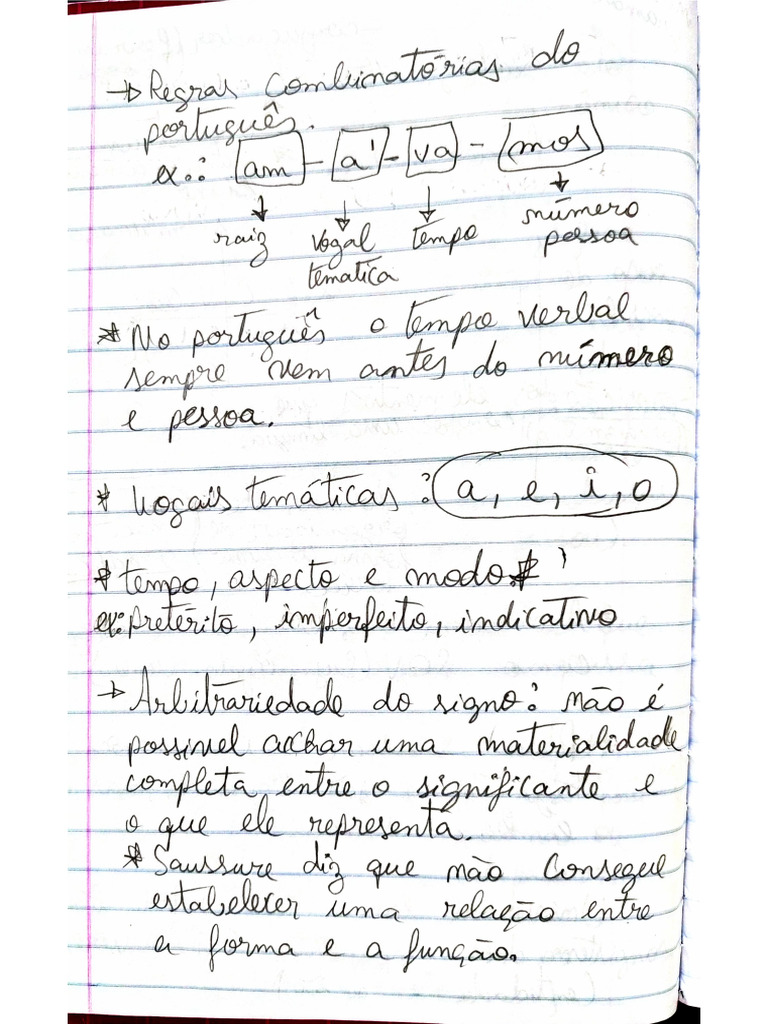 → Regras combinatórias do
português.
ex.: am - a' - va - mos
raiz vogal temática tempo número pessoa
* No português o tempo verbal
sempre vem antes do número
e pessoa.
* Vogais temáticas : a, e, i, o
* tempo, aspecto e modo.
ex: pretérito, imperfeito, indicativo
→ Arbitrariedade do signo: não é
possível achar uma materialidade
completa entre o significante e
o que ele representa.
* Saussure diz que não consegue
estabelecer uma relação entre
a forma e a função.